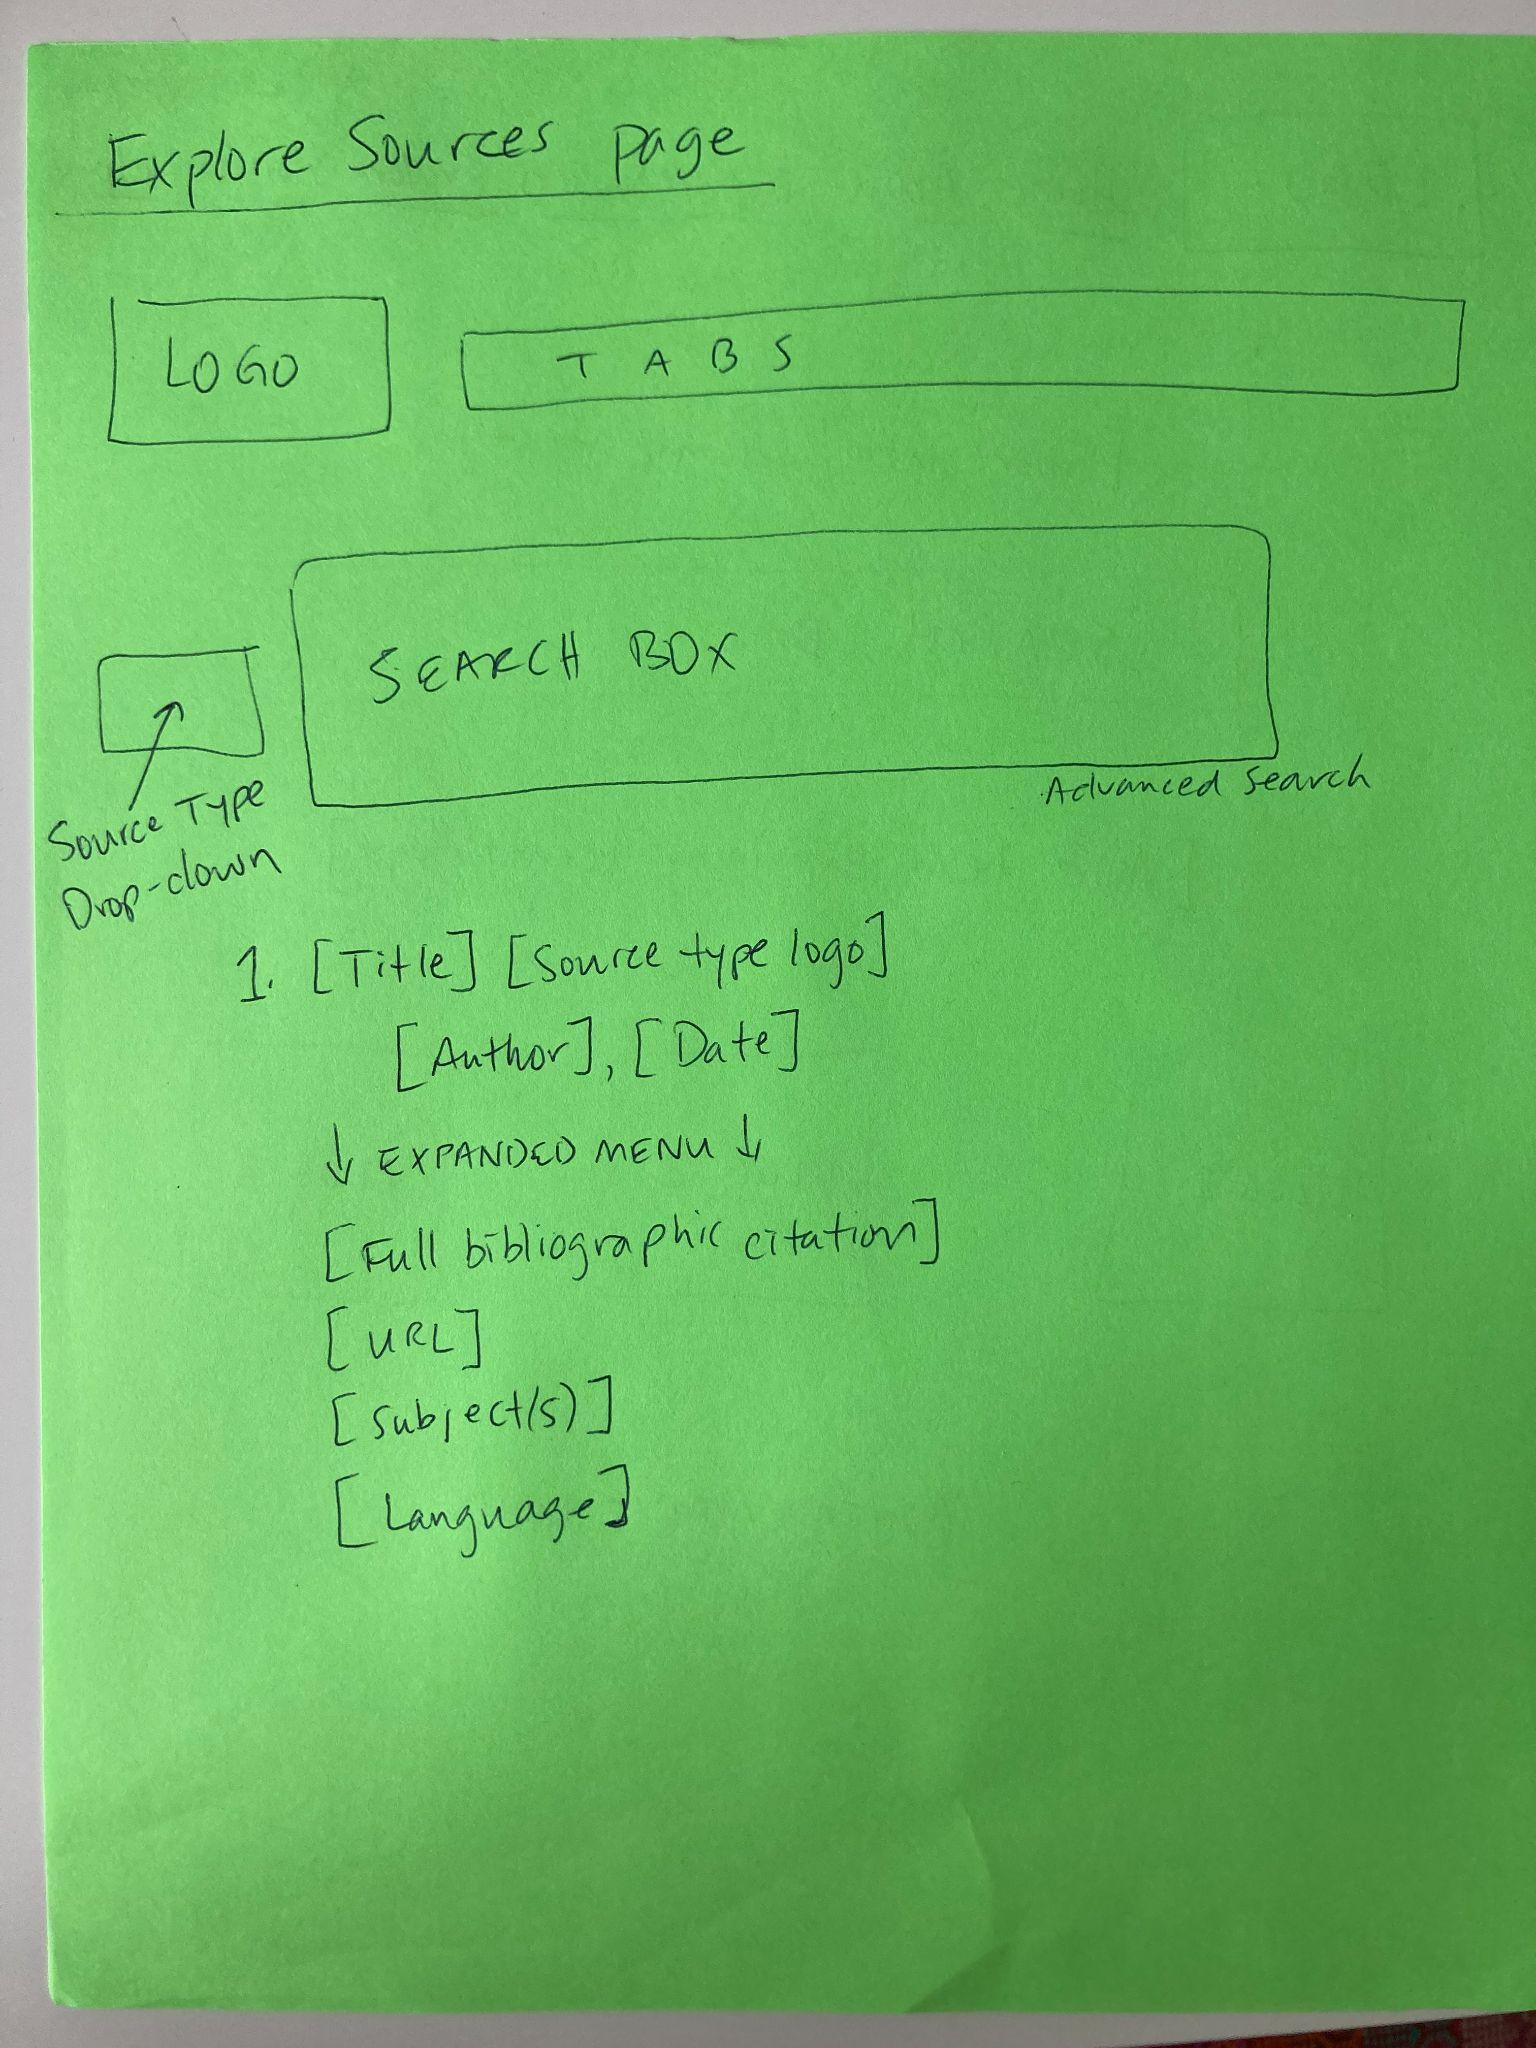 Explore Sources page
LOGO
TABS
SEARCH BOX
Advanced Search
Source Type
Drop-down
1. [Title] [Source type logo]
[Author], [Date]
↓ EXPANDED MENU ↓
[Full bibliographic citation]
[URL]
[Subject(s)]
[Language]